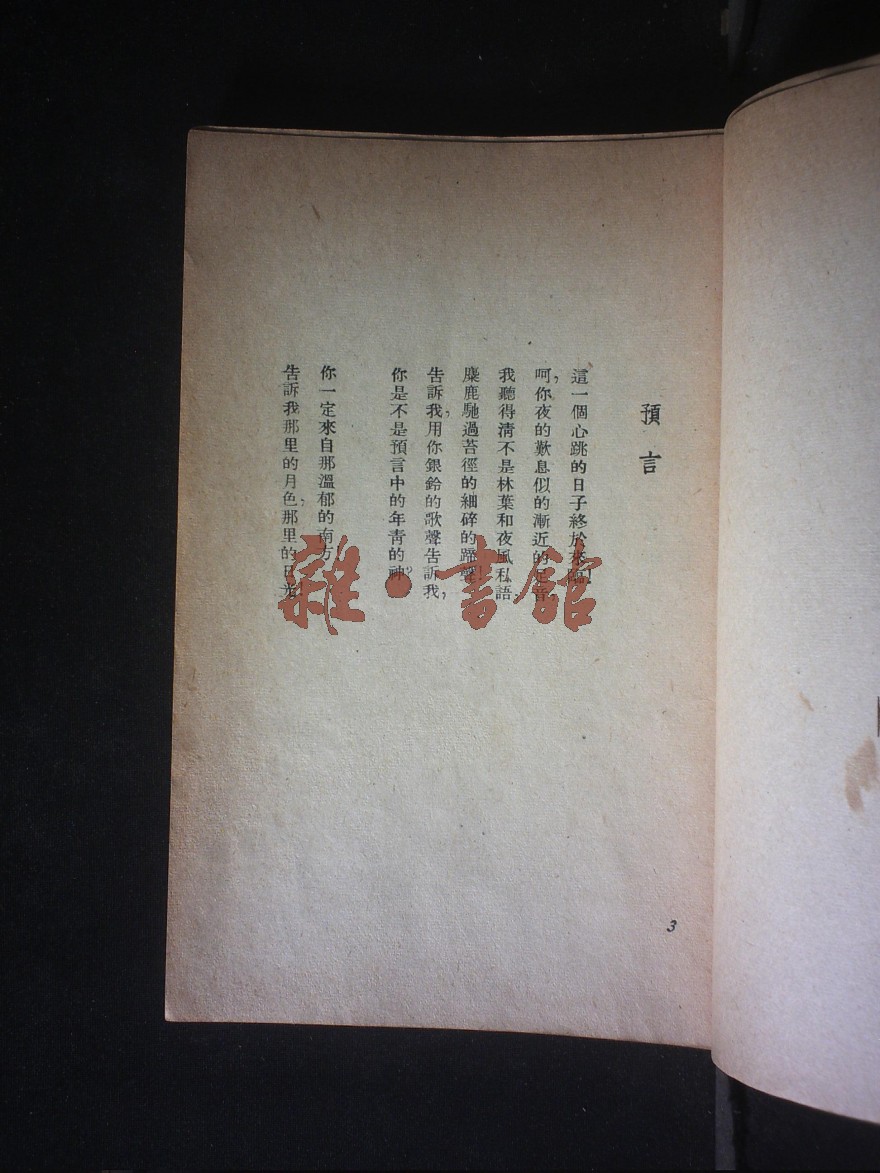 預言
這一個心跳的日子終於來臨！
呵，你夜的歎息似的漸近的足音，
我聽得清不是林葉和夜風私語，
麋鹿馳過苔徑的細碎的蹄聲！
告訴我，用你銀鈴的歌聲告訴我，
你是不是預言中的年青的神？
你一定來自那溫郁的南方！
告訴我那里的月色，那里的日光！
3
雜·書館